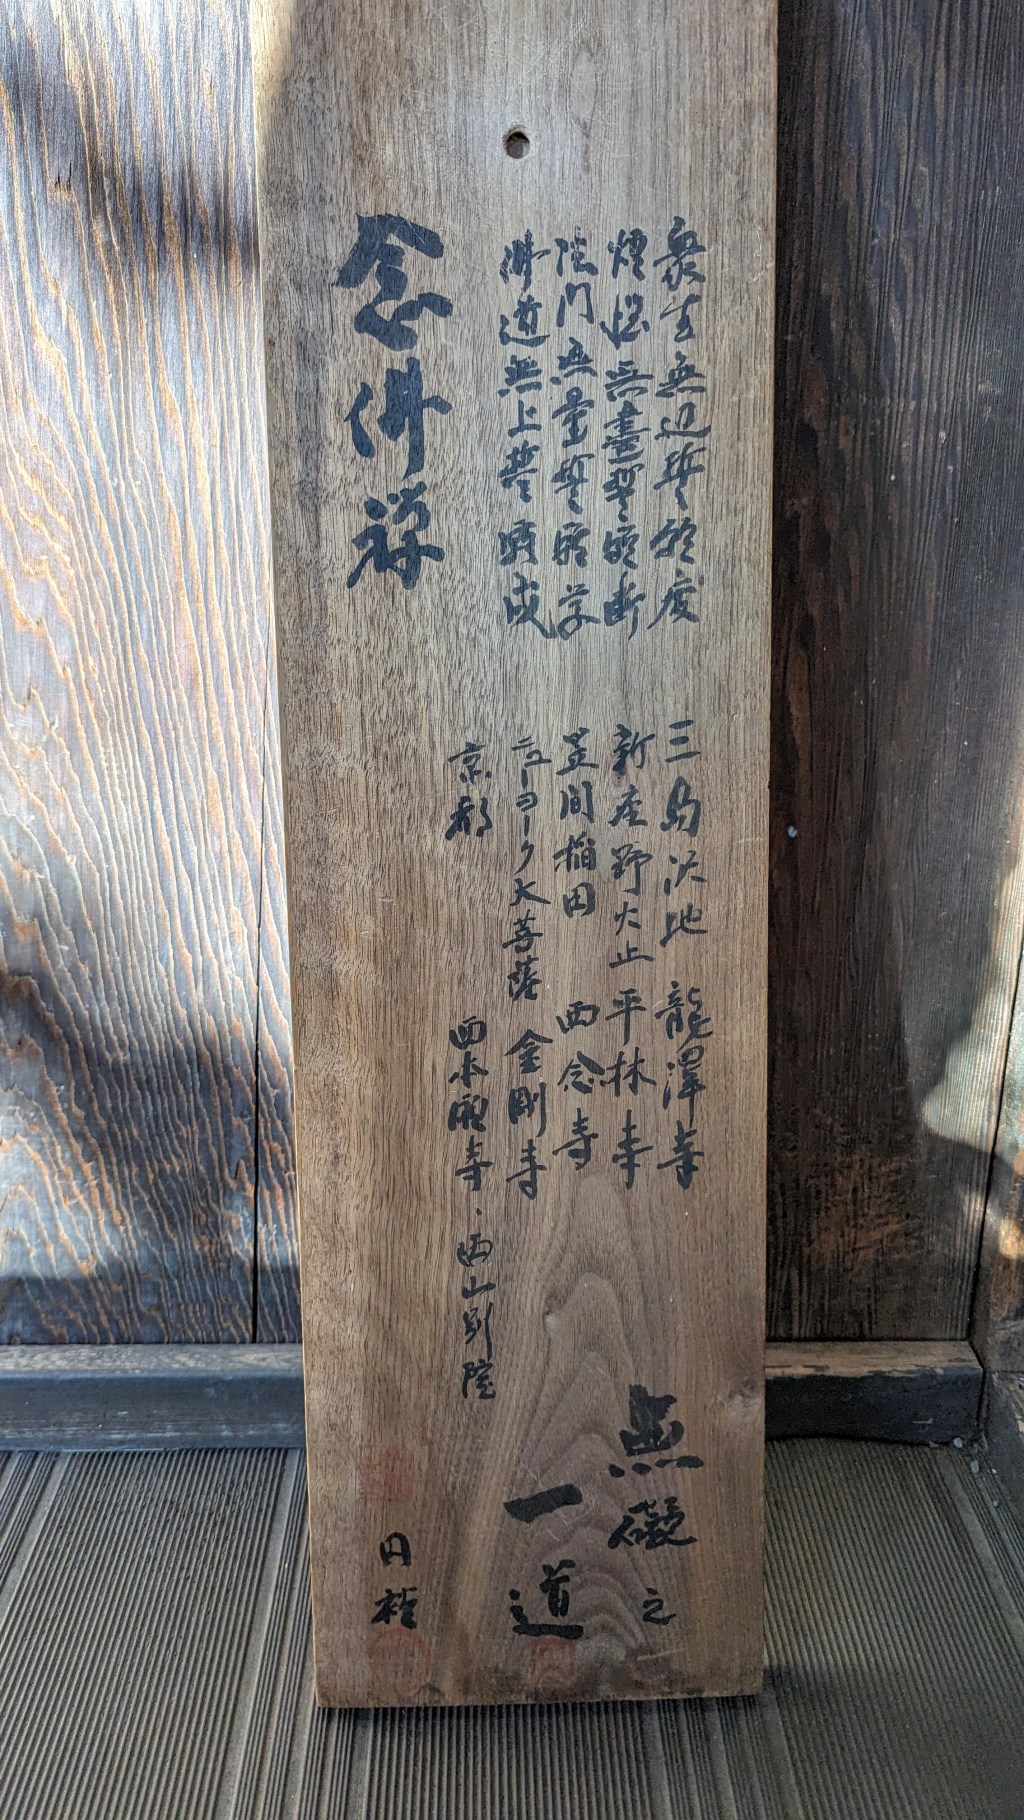 衆生無辺誓願度
煩悩無盡誓願断
法門無量誓願学
佛道無上誓願成
念佛禅
三島沢地 龍澤寺
新座野火止 平林寺
笠間稲田 西念寺
ニューヨーク大菩薩 金剛寺
京都 西本願寺、西山別院
無礙之
一道
円